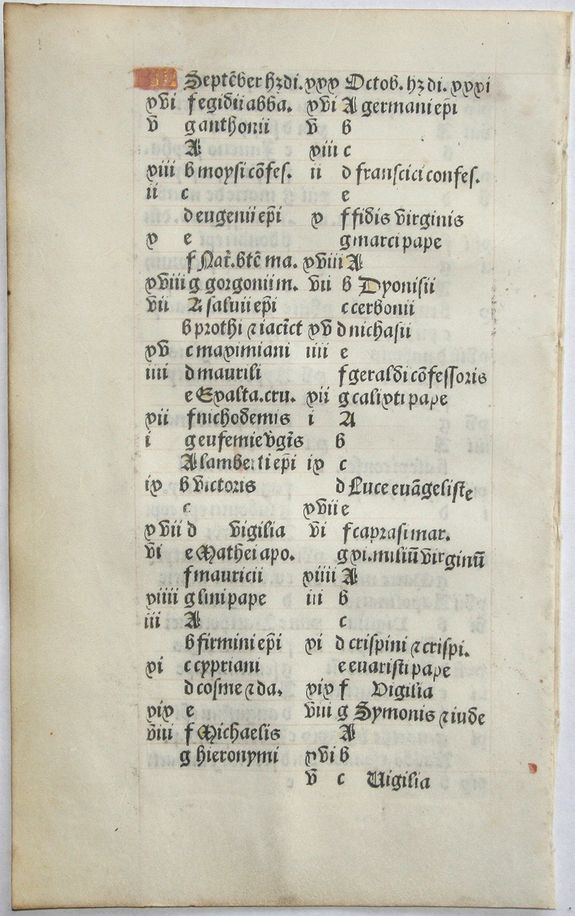 KL Septẽber hȝ di. xxx Octob. hȝ di. xxxi
xvi f egidii abba. xvi A germani ep̃i
v g anthonii v b
A xviii c
xiii b moysi cõfes. ii d francisci confes.
ii c e
d eugenii ep̃i x f fidis virginis
x e g marci pape
f Nat̃. btẽ ma. xviii A
xviii g gorgonii m. vii b Dyonisii
vii A saluii ep̃i c cerbonii
b prothi ⁊ iacict xv d nichasii
xv c maximiani iiii e
iiii d maurili f geraldi cõfessoris
e Exalta. cru. xii g calixti pape
xii f nichodemis i A
i g eufemie v̾gis b
A lamberti ep̃i ix c
ix b victoris d Luce euãgeliste
c xvii e
xvii d vigilia vi f caprasi mar.
vi e Mathei apo. g xi. miliũ virginũ
f mauricii xiiii A
xiiii g lini pape iii b
iii A c
b firmini ep̃i xi d crispini ⁊ crispi.
xi c cypriani e euaristi pape
d cosme ⁊ da. xix f Vigilia
xix e viii g Symonis ⁊ iude
viii f Michaelis A
g hieronymi xvi b
v c Uigilia